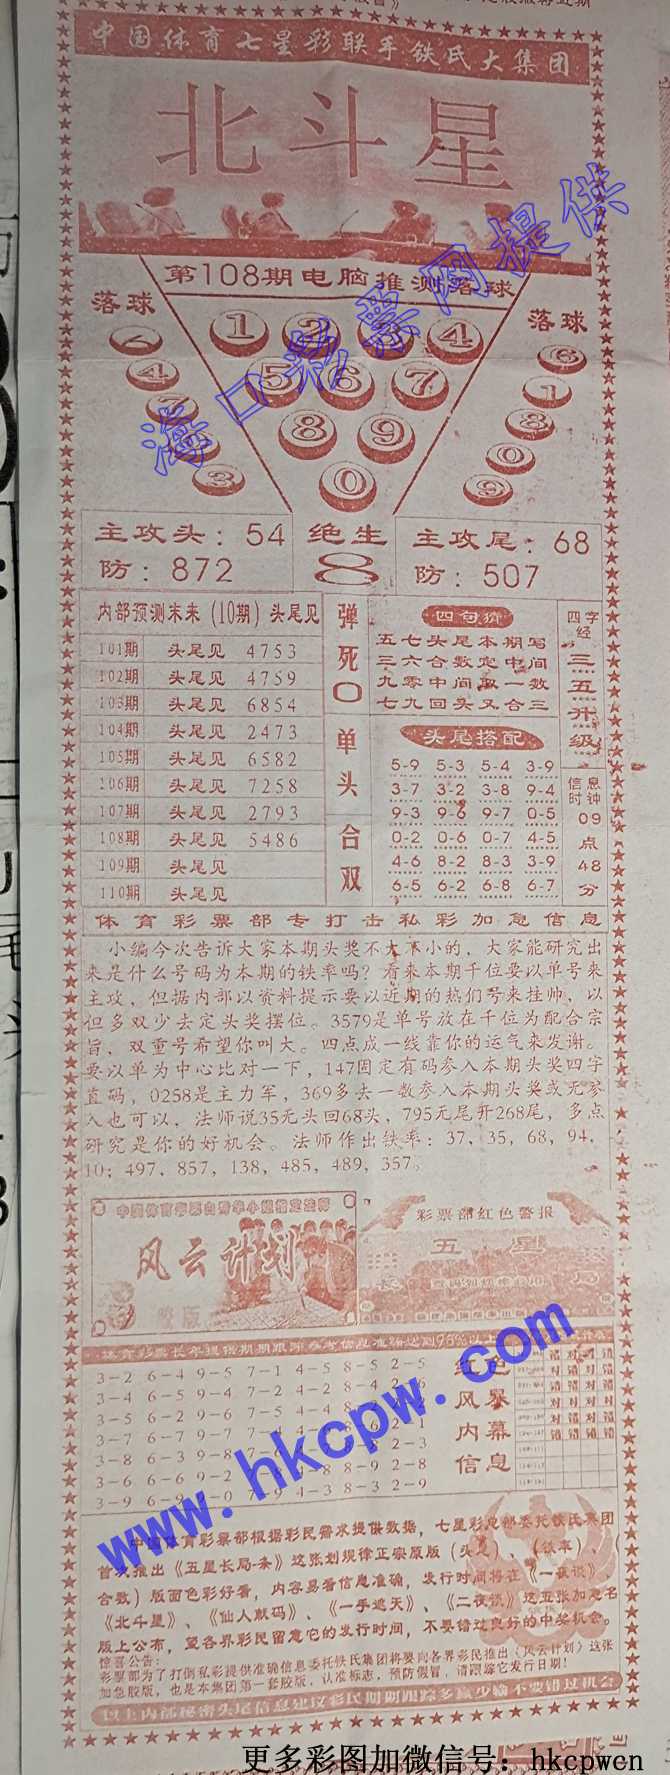 中国体育七星彩联手铁氏大集团
北斗星
第108期电脑推测落球
落球
落球
1 2 3 4
5 6 7
8 9
0
4
3
6
1
8
0
9
主攻头：54
防：872
绝生
8
主攻尾：68
防：507
内部预测未来(10期)头尾见
101期 头尾见 4753
102期 头尾见 4759
103期 头尾见 6854
104期 头尾见 2473
105期 头尾见 6582
106期 头尾见 7258
107期 头尾见 2793
108期 头尾见 5486
109期 头尾见
110期 头尾见
弹死0
单头
合双
四句猜
五七头尾本期写
三六合数定中间
九零中间取一数
七九回头又合三
头尾搭配
5-9 5-3 5-4 3-9
3-7 3-2 3-8 9-4
9-3 9-6 9-7 0-5
0-2 0-6 0-7 4-5
4-6 8-2 8-3 3-9
6-5 6-2 6-8 6-7
四字经
三五升级
信息时钟
09点48分
体育彩票部专打击私彩加急信息
小编今次告诉大家本期头奖不大不小的，大家能研究出
来是什么号码为本期的铁率吗？看来本期千位要以单号来
主攻，但据内部以资料提示要以近期的热们号来挂帅，以
但多双少去定头奖摆位。3579是单号放在千位为配合宗
旨，双重号希望你叫大。四点成一线靠你的运气来发谢。
要以单为中心比对一下，147固定有码参入本期头奖四字
直码，0258是主力军，369多去一数参入本期头奖或无参
入也可以，法师说35无头回68头，795无尾开268尾，多点
研究是你的好机会。法师作出铁率：37，35，68，94，
10；497，857，138，485，489，357。
风云计划
胶版
彩票部红色警报
五星
长
局
3-2 6-4 9-5 7-1 4-5 8-5 2-5
3-4 6-5 9-4 7-2 4-2 8-4 2-6
3-5 6-2 9-6 7-5 4-4
3-7 6-7 9-7 7-
3-8 6-3 9-8 2-3
3-6 6-6 8-9 2-8
3-9 4-3 8-3 2-9
红色
风暴
内幕
信息
中国体育彩票部根据彩民需求提供数据，七星彩总部委托铁氏集团
首次推出《五星长局-条》这张划规律正宗原版(头尾)、(铁率)、(
合数)版面色彩好看，内容易看信息准确，发行时间将在《一夜谈》
《北斗星》、《仙人献码》、《一手遮天》、《二夜谈》这五张加急名
版上公布，望各界彩民留意它的发行时间，不要错过良好的中奖机会。
惊喜公告：
彩票部为了打倒私彩提供准确信息委托铁氏集团将要向各界彩民推出《风云计划》这张
加急胶版，也是本集团第一套胶版，认准标志，预防假冒，请跟踪它发行日期！
以上内部秘密头尾信息建议彩民期期跟踪多赢少输不要错过机会
海口彩票网提供
www.hkcpw.com
更多彩图加微信号：hkcpwcn